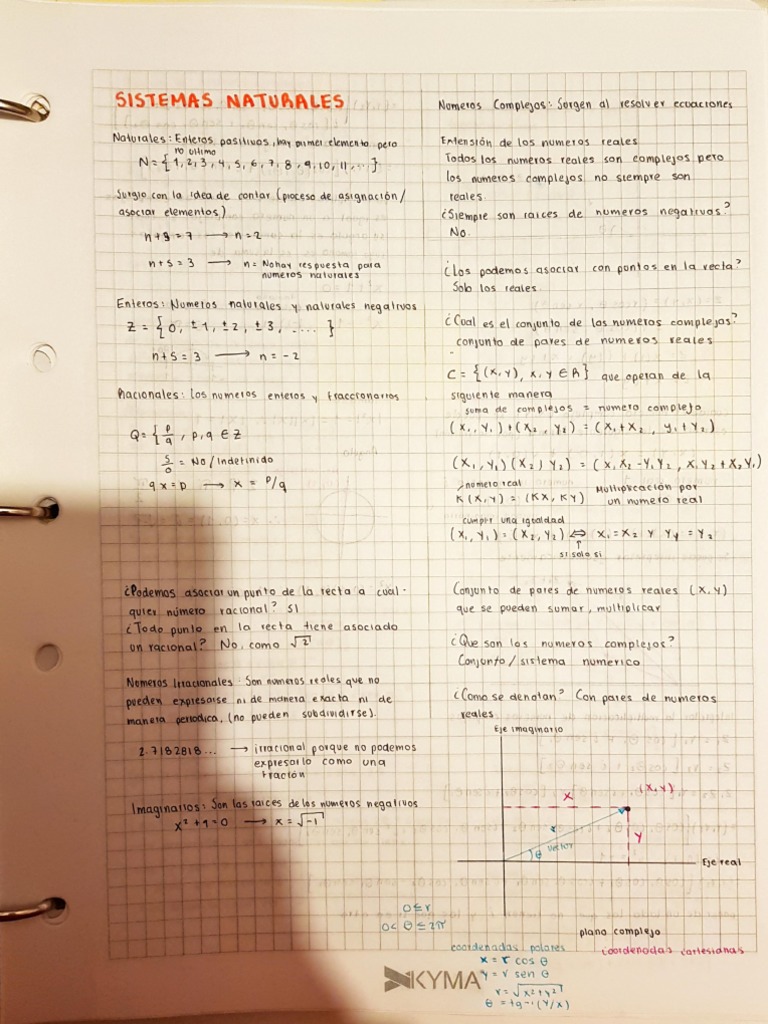 SISTEMAS NATURALES
Naturales: Enteros positivos, hay primer elemento pero
no ultimo
N = { 1, 2, 3, 4, 5, 6, 7, 8, 9, 10, 11, ... }
Surgio con la idea de contar (proceso de asignación /
asociar elementos)
n + 9 = 7 → n = 2
n + 5 = 3 → n = No hay respuesta para
numeros naturales
Enteros: Numeros naturales y naturales negativos
Z = { 0, ±1, ±2, ±3, .... }
n + 5 = 3 → n = -2
Racionales: Los numeros enteros y fraccionarios
Q = { p/q , p, q ∈ Z
5/0 = No / Indefinido
qx = p → x = p/q
¿Podemos asociar un punto de la recta a cual-
quier número racional? SI
¿Todo punto en la recta tiene asociado
un racional? No, como √2
Numeros Irracionales: Son numeros reales que no
pueden expresarse ni de manera exacta ni de
manera periodica, (no pueden subdividirse).
2.7182818... → irracional porque no podemos
expresarlo como una
fración
Imaginarios: Son las raices de los numeros negativos
x² + 1 = 0 → x = √-1
Numeros Complejos: Surgen al resolver ecuaciones
Extensión de los numeros reales
Todos los numeros reales son complejos pero
los numeros complejos no siempre son
reales.
¿Siempre son raices de numeros negativos?
No.
¿Los podemos asociar con puntos en la recta?
Solo los reales
¿Cual es el conjunto de los numeros complejos?
conjunto de pares de numeros reales
C = { (x, y), x, y ∈ R } que operan de la
siguiente manera
suma de complejos = numero complejo
(x₁, y₁) + (x₂, y₂) = (x₁ + x₂, y₁ + y₂)
(x₁, y₁) (x₂, y₂) = (x₁x₂ - y₁y₂, x₁y₂ + x₂y₁)
numero real
K(x, y) = (Kx, Ky) Multiplicación por
un numero real
cumplir una igualdad
(x₁, y₁) = (x₂, y₂) ⇔ x₁ = x₂ y y₁ = y₂
↑
si solo si
Conjunto de pares de numeros reales (x, y)
que se pueden sumar, multiplicar
¿Que son los numeros complejos?
Conjunto / sistema numerico
¿Como se denotan? Con pares de numeros
reales
Eje imaginario
(x, y)
x
r
y
θ vector
Eje real
0 ≤ r
0 < θ ≤ 2π
plano complejo
coordenadas polares
coordenadas cartesianas
x = r cos θ
y = r sen θ
r = √x² + y²
θ = tg-1 (y/x)
KYMA